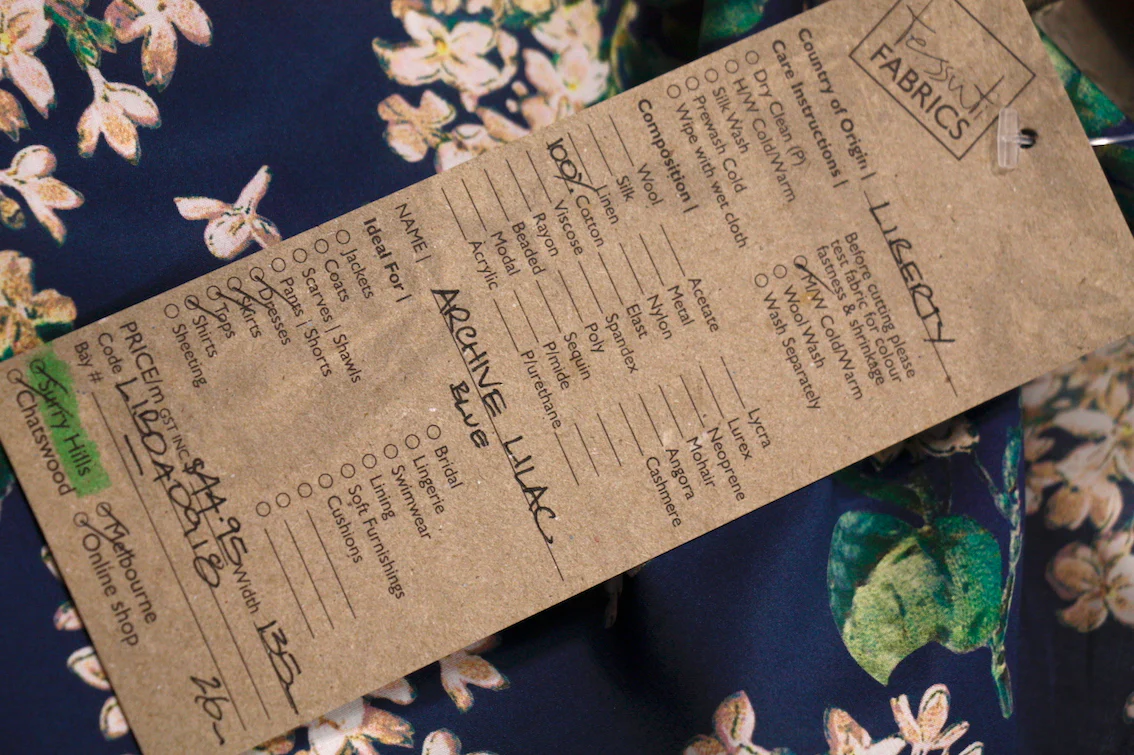 Tessuti
FABRICS
Country of Origin | LIBERTY
Care Instructions |
Before cutting please
test fabric for colour
fastness & shrinkage
Dry Clean (P)
H/W Cold/Warm
Silk Wash
Prewash Cold
Wipe with wet cloth
M/W Cold/Warm
Wool Wash
Wash Separately
Composition |
Wool
Silk
Linen
100% Cotton
Viscose
Rayon
Beaded
Modal
Acrylic
Acetate
Metal
Nylon
Elast
Spandex
Poly
Sequin
P/mide
P/urethane
Lycra
Lurex
Neoprene
Mohair
Angora
Cashmere
NAME | ARCHIVE LILAC
BLUE
Ideal For |
Jackets
Coats
Scarves | Shawls
Pants | Shorts
Dresses
Skirts
Tops
Shirts
Sheeting
Bridal
Lingerie
Swimwear
Lining
Soft Furnishings
Cushions
PRICE/m GST INC $44.95 Width 135
Code LIBOA0918
Bay # 26
Surry Hills
Chatswood
Melbourne
Online shop